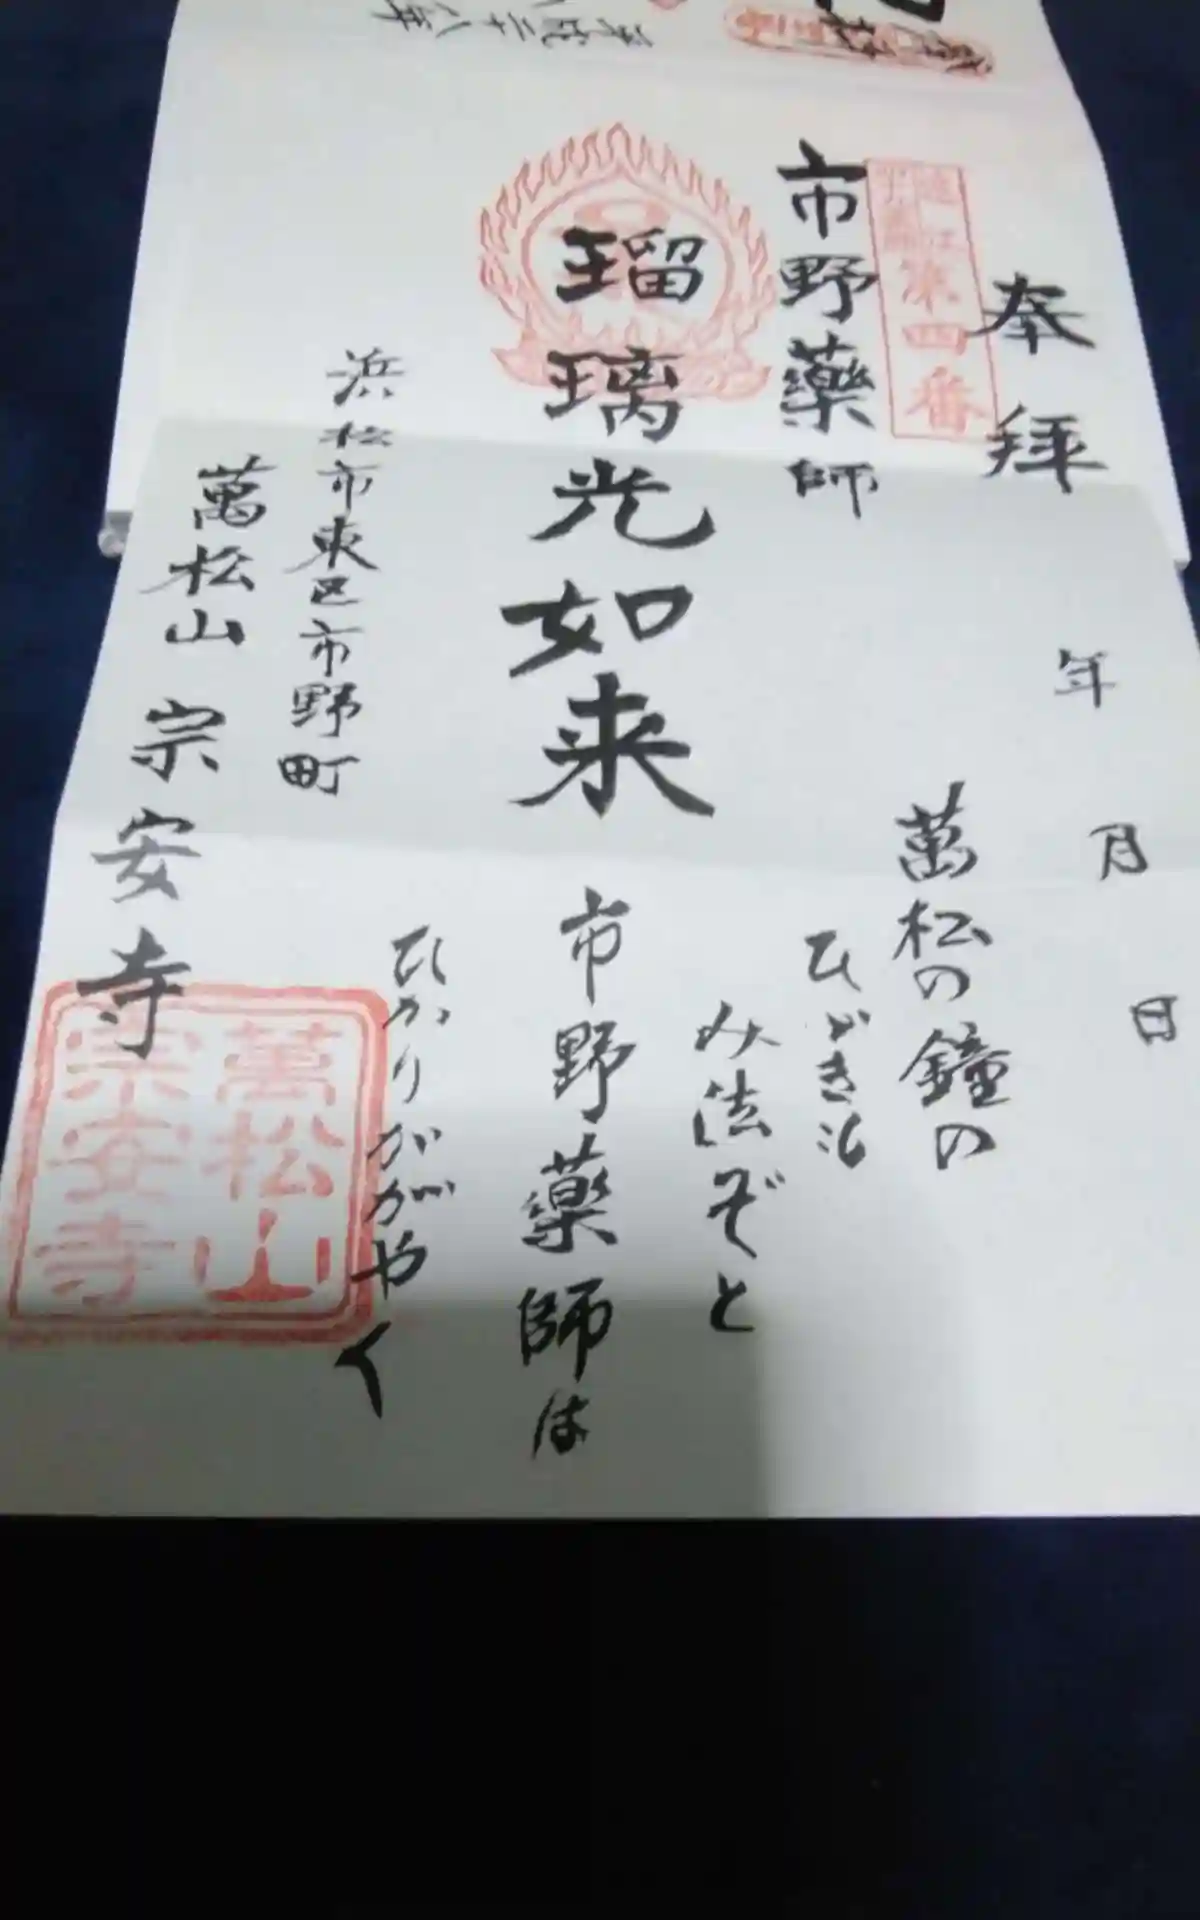 奉拝
年 月 日
第四番
市野薬師
瑠璃光如来
浜松市東区市野町
萬松山 宗安寺
萬松の鐘の
ひゞきも
み法ぞと
市野薬師は
ひかりががやく
萬松山
宗安寺
平成二十八年